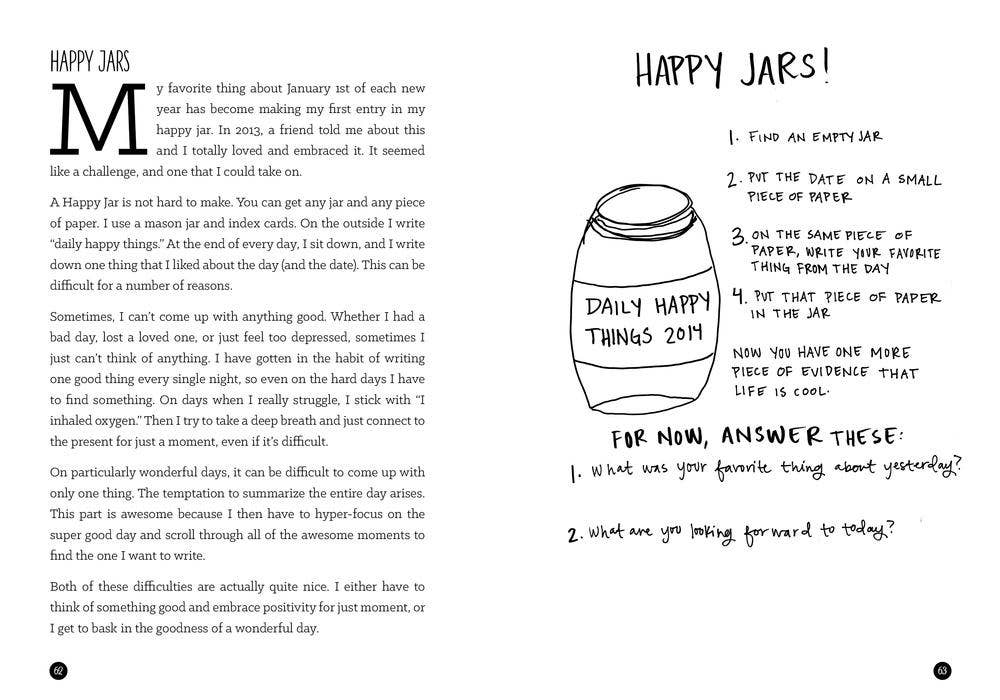 HAPPY JARS
My favorite thing about January 1st of each new
year has become making my first entry in my
happy jar. In 2013, a friend told me about this
and I totally loved and embraced it. It seemed
like a challenge, and one that I could take on.
A Happy Jar is not hard to make. You can get any jar and any piece
of paper. I use a mason jar and index cards. On the outside I write
“daily happy things.” At the end of every day, I sit down, and I write
down one thing that I liked about the day (and the date). This can be
difficult for a number of reasons.
Sometimes, I can’t come up with anything good. Whether I had a
bad day, lost a loved one, or just feel too depressed, sometimes I
just can’t think of anything. I have gotten in the habit of writing
one good thing every single night, so even on the hard days I have
to find something. On days when I really struggle, I stick with “I
inhaled oxygen.” Then I try to take a deep breath and just connect to
the present for just a moment, even if it’s difficult.
On particularly wonderful days, it can be difficult to come up with
only one thing. The temptation to summarize the entire day arises.
This part is awesome because I then have to hyper-focus on the
super good day and scroll through all of the awesome moments to
find the one I want to write.
Both of these difficulties are actually quite nice. I either have to
think of something good and embrace positivity for just moment, or
I get to bask in the goodness of a wonderful day.
62
HAPPY JARS!
1. FIND AN EMPTY JAR
2. PUT THE DATE ON A SMALL
PIECE OF PAPER
3. ON THE SAME PIECE OF
PAPER, WRITE YOUR FAVORITE
THING FROM THE DAY
4. PUT THAT PIECE OF PAPER
IN THE JAR
DAILY HAPPY
THINGS 2014
NOW YOU HAVE ONE MORE
PIECE OF EVIDENCE THAT
LIFE IS COOL.
FOR NOW, ANSWER THESE:
1. What was your favorite thing about yesterday?
2. What are you looking forward to today?
63